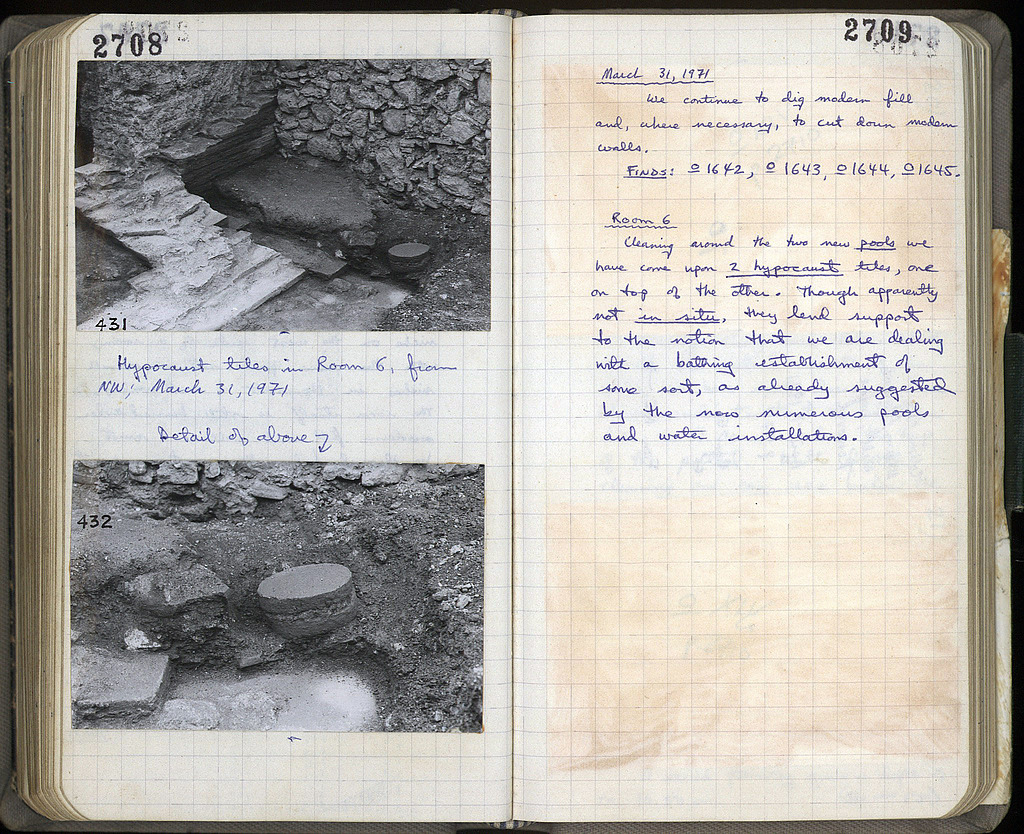 2708
431
Hypocaust tiles in Room 6, from
NW; March 31, 1971
Detail of above
432
2709
March 31, 1971
We continue to dig modern fill
and, where necessary, to cut down modern
walls.
FINDS: O 1642, O 1643, O 1644, O 1645.
Room 6
Cleaning around the two new pools we
have come upon 2 hypocaust tiles, one
on top of the other. Though apparently
not in situ, they lend support
to the notion that we are dealing
with a bathing establishment of
some sort, as already suggested
by the now numerous pools
and water installations.